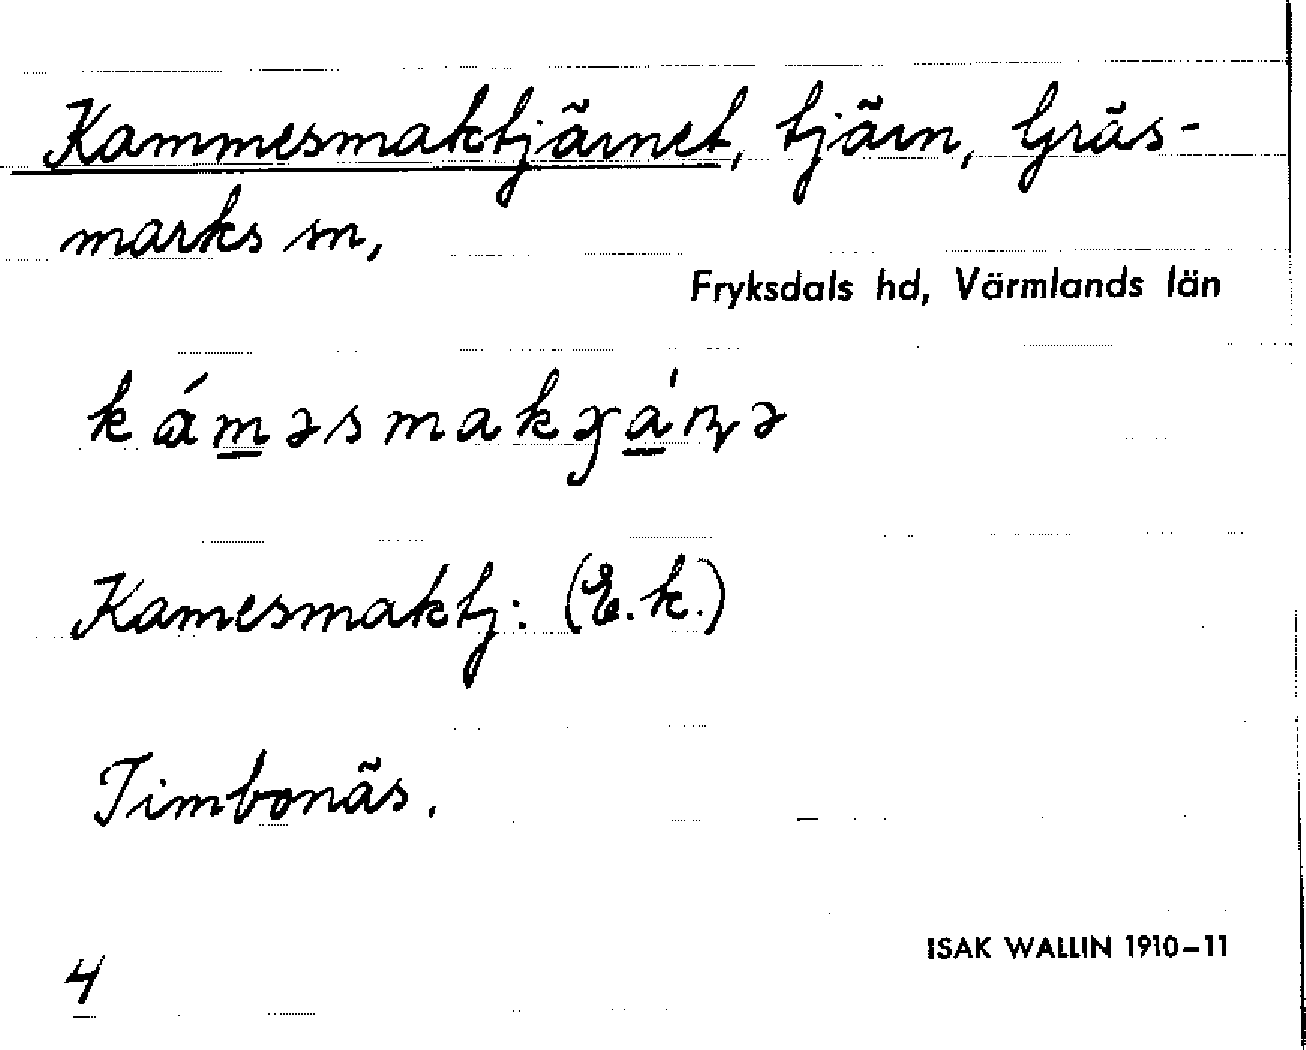 Kammesmaktjärnet, tjärn, Gräs-
marks sn,
Fryksdals hd, Värmlands län
Kamesmaktj: (E.k.)
Timbonäs.
ISAK WALLIN 1910–11
4